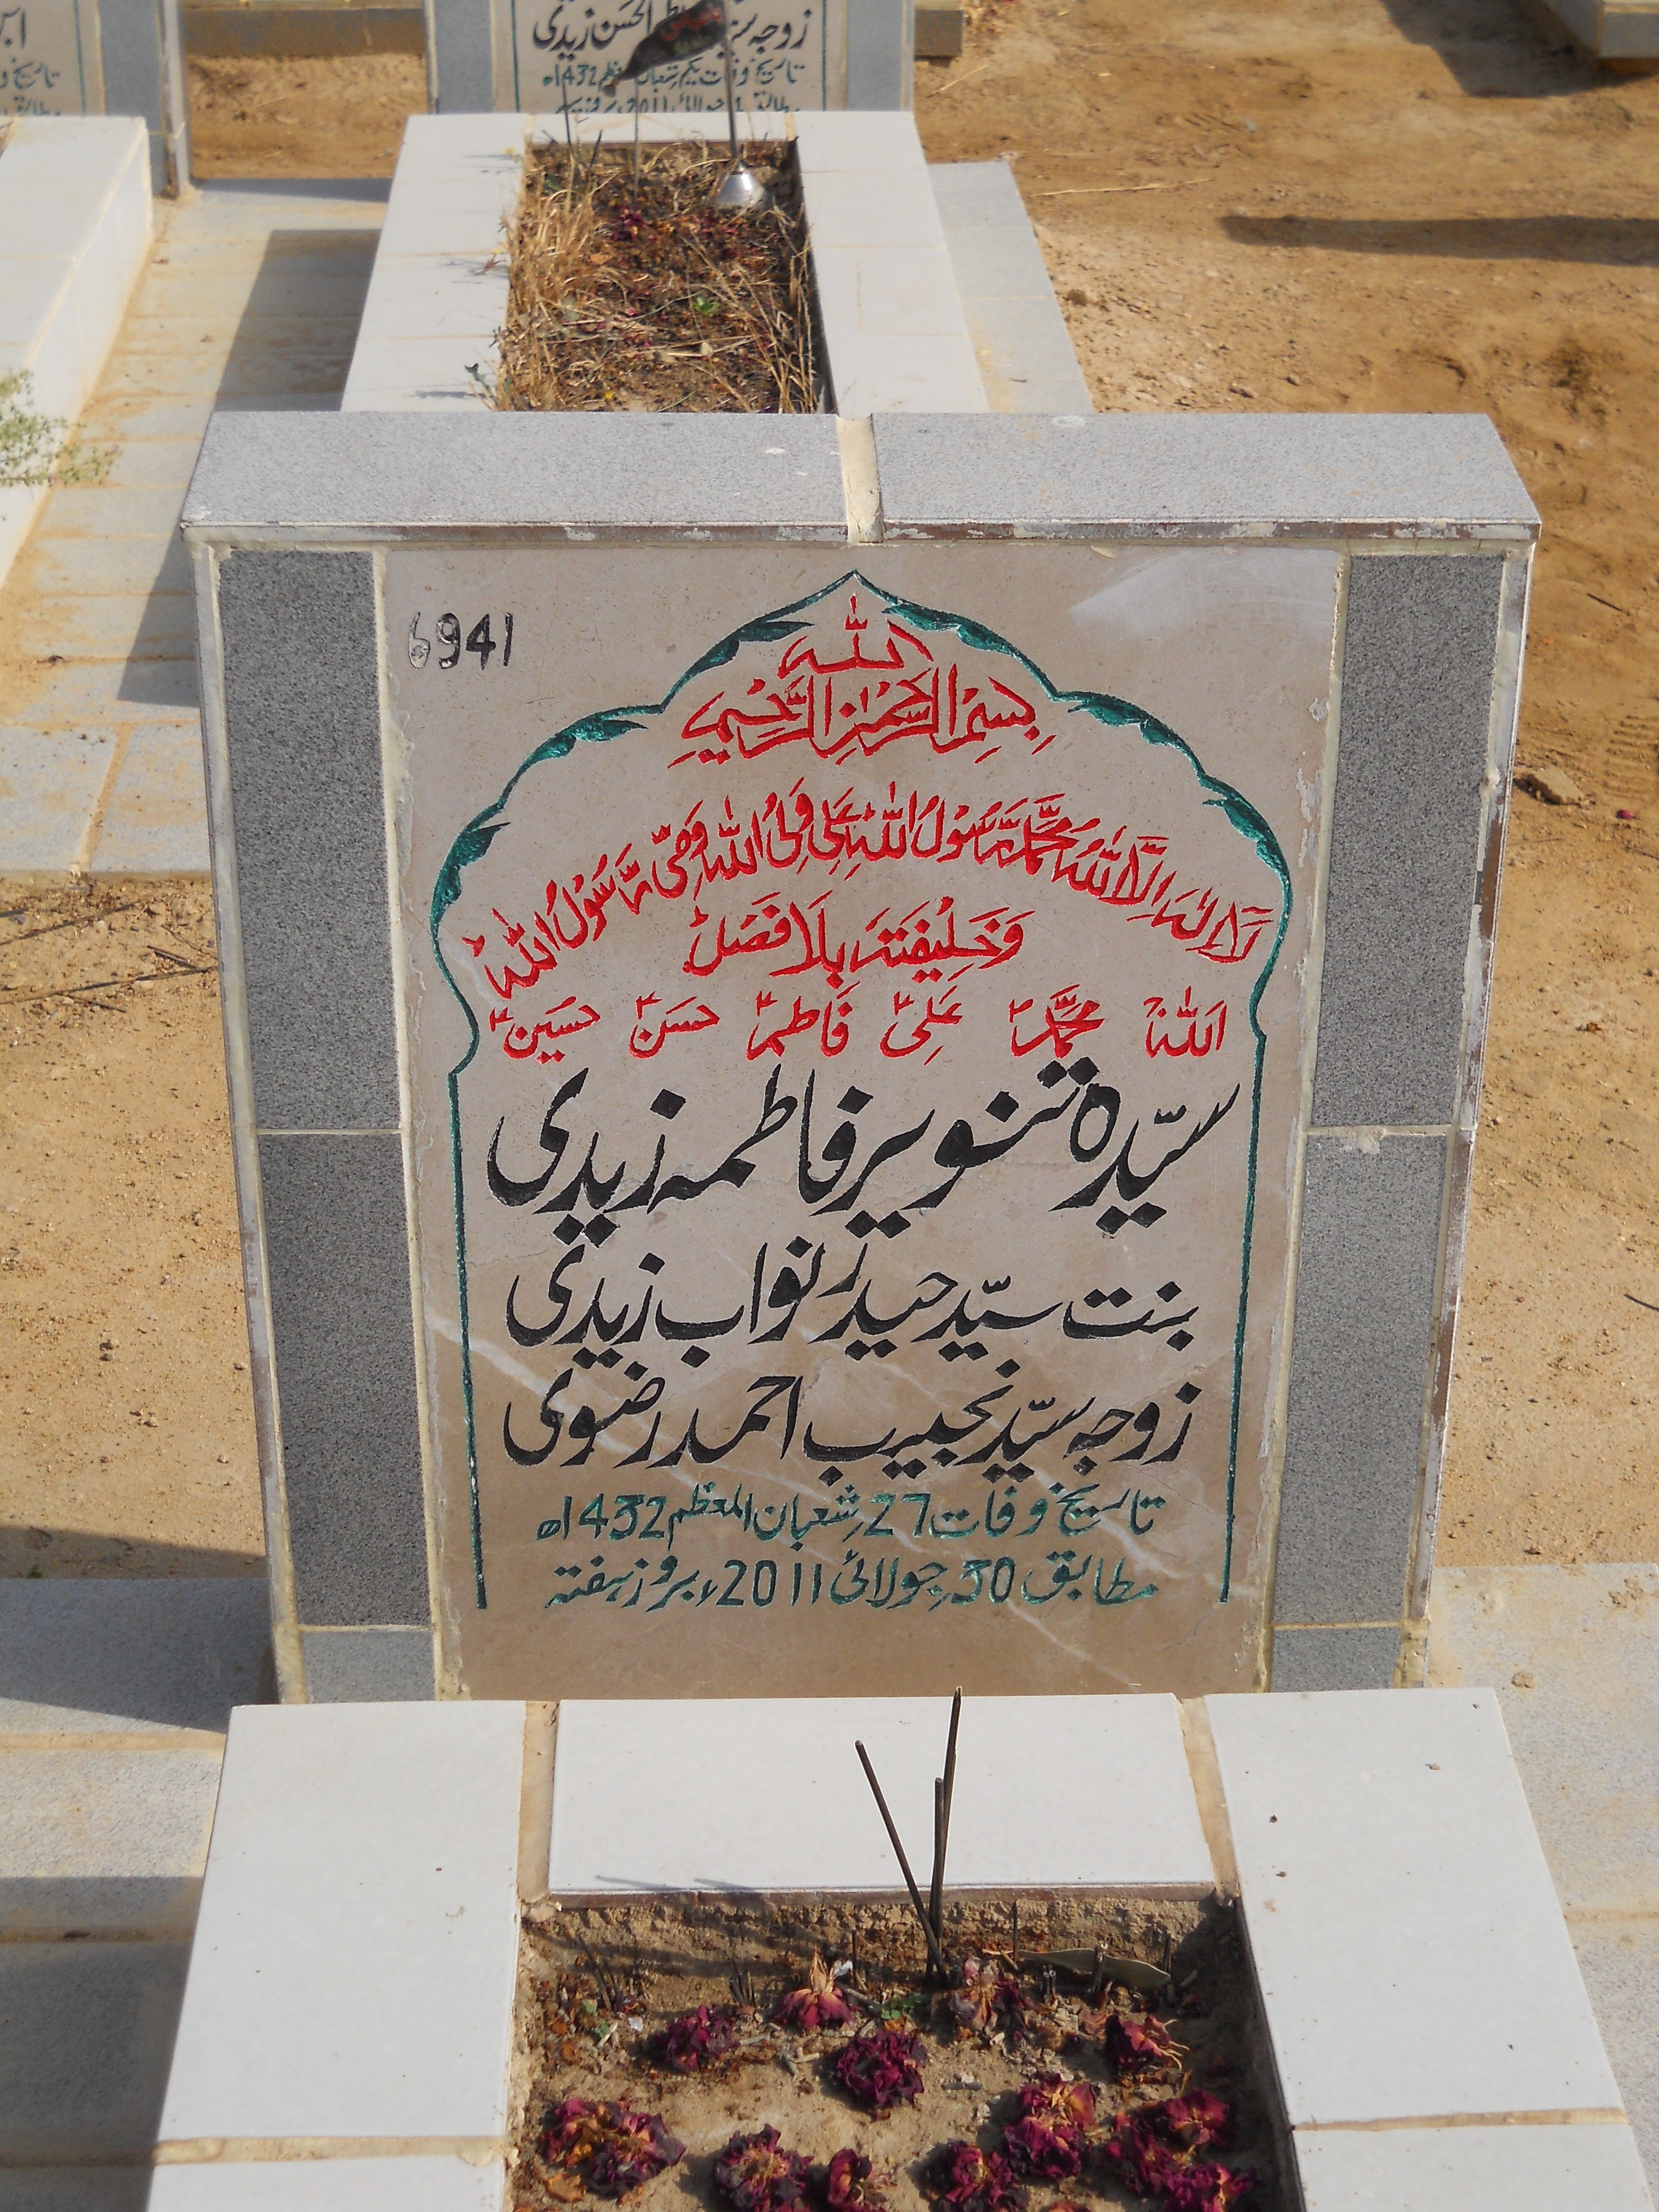 زوجہ سید
الحسن زیدی
تاریخ وفات یکم شعبان المعظم 1432ھ
6941
بسم اللہ الرحمن الرحیم
لَا اِلٰہَ اِلَّا اللہُ مُحَمَّدٌ رَّسُوْلُ اللہِ عَلِیٌّ وَلِیُّ اللہِ وَصِیُّ رَسُوْلُ اللہِ
وَخَلِیْفَتَہٗ بِلَا فَصْلْ
اللہ محمدؐ علیؑ فاطمہؑ حسنؑ حسینؑ
سیّدہ تنویر فاطمہ زیدی
بنت سیّد حیدر نواب زیدی
زوجہ سیّد نجیب احمد رضوی
تاریخ وفات 27 شعبان المعظم 1432ھ
مطابق 30 جولائی 2011ء بروز ہفتہ